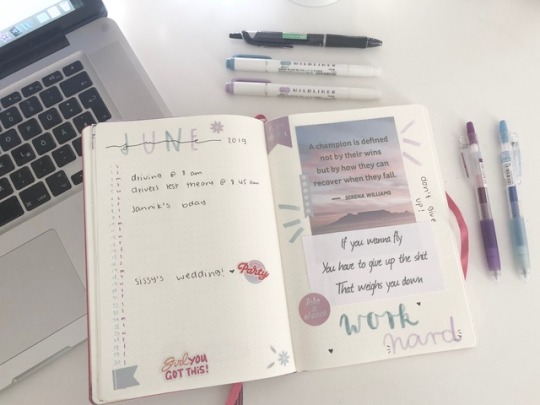 JUNE 2019
driving @ 8 am
drivers test theorie @ 8.45 am
Jannik's bday
sissy's wedding! ♥ Party
Girl YOU
GOT THIS!
A champion is defined
not by their wins
but by how they can
recover when they fall.
SERENA WILLIAMS
don't give up!
If you wanna fly
You have to give up the shit
That weighs you down
work
hard
MILDLINER
MILDLINER